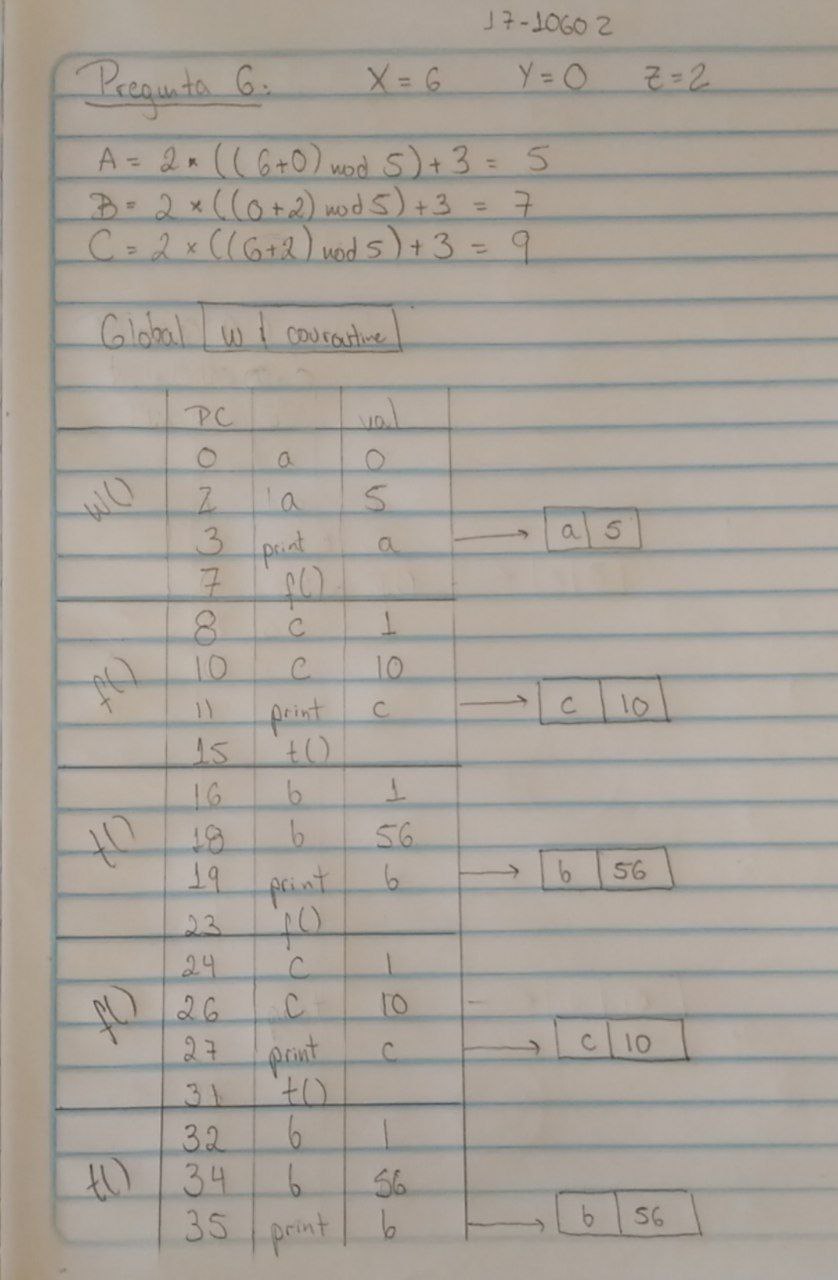 17-10602
Pregunta 6: X = 6 Y = 0 Z = 2
A = 2 * ((6+0) mod 5) + 3 = 5
B = 2 × ((0+2) mod 5) + 3 = 7
C = 2 × ((6+2) mod 5) + 3 = 9
Global w couroutine
PC val
0 a 0
w() 2 a 5
3 print a → a 5
7 f()
8 c 1
f() 10 c 10
11 print c → c 10
15 t()
16 b 1
t() 18 b 56
19 print b → b 56
23 f()
24 c 1
f() 26 c 10
27 print c → c 10
31 t()
32 b 1
t() 34 b 56
35 print b → b 56